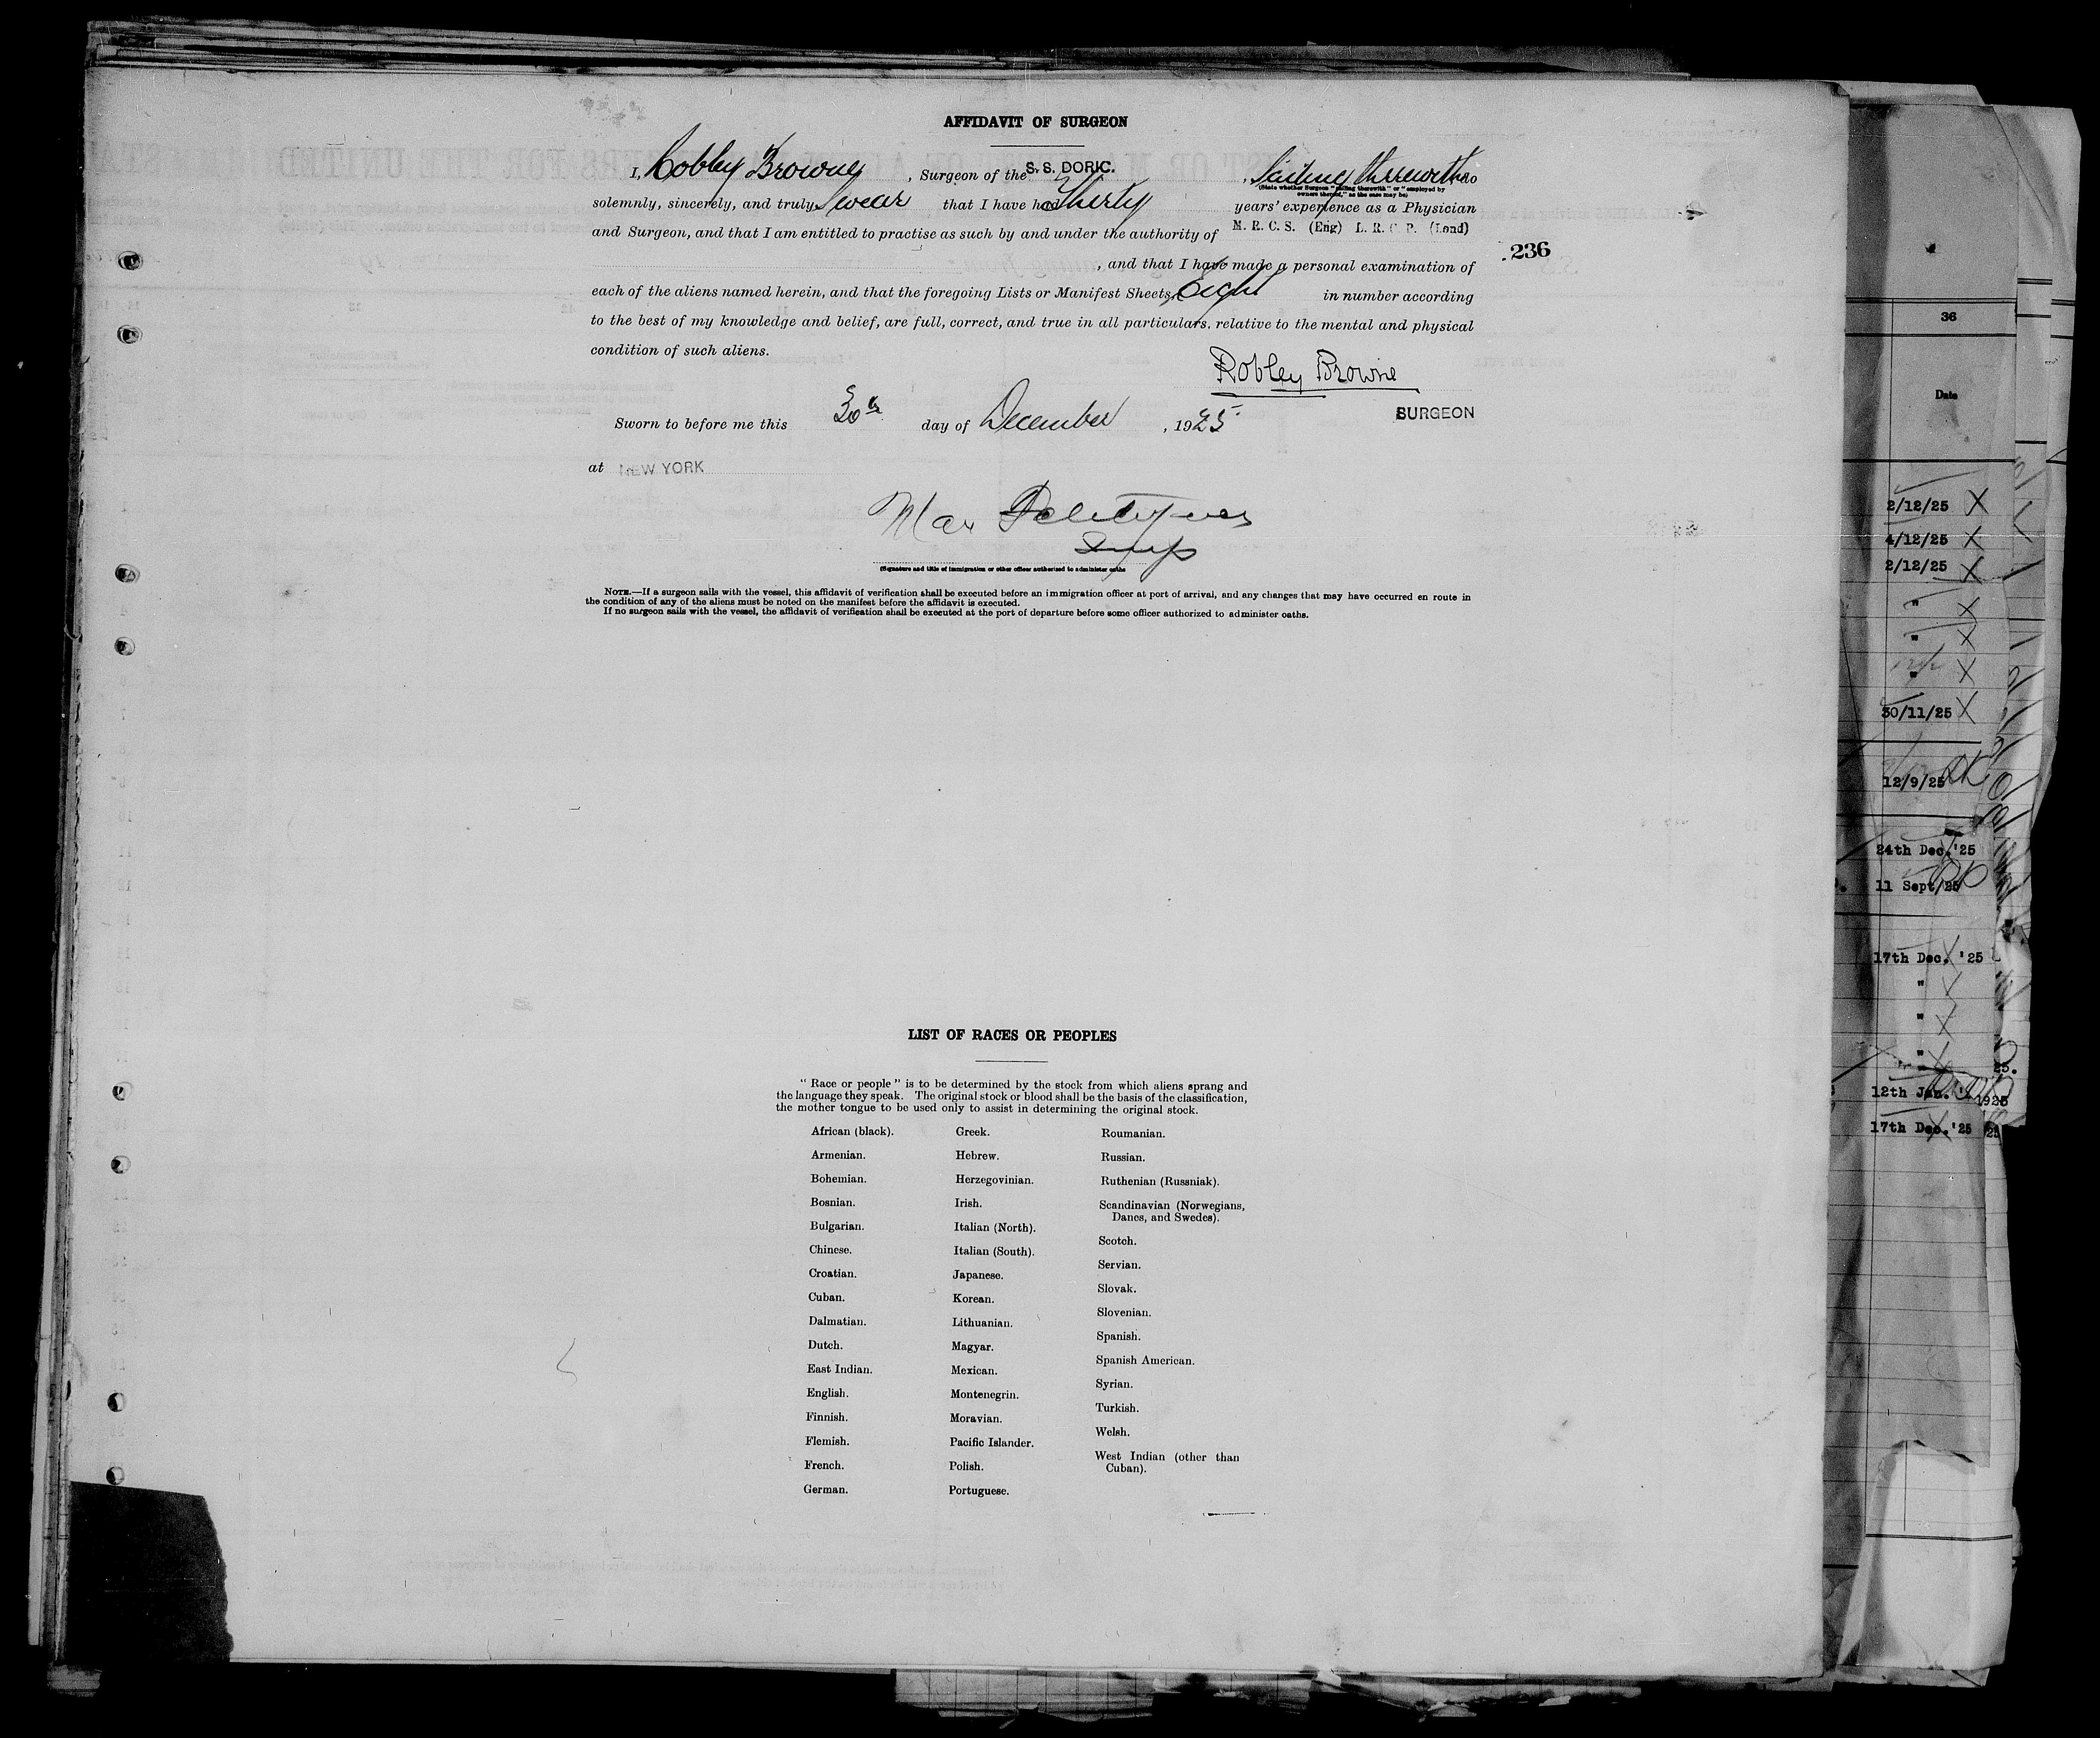 AFFIDAVIT OF SURGEON
I, Robley Browne, Surgeon of the S. S. DORIC. , Sailing therewith do
(State whether Surgeon "sailing therewith" or "employed by owners thereof," as the case may be)
solemnly, sincerely, and truly Swear that I have had Thirty years' experience as a Physician
and Surgeon, and that I am entitled to practise as such by and under the authority of M. R. C. S. (Eng) L. R. C. P. (Lond)
, and that I have made a personal examination of
236
each of the aliens named herein, and that the foregoing Lists or Manifest Sheets, Eight in number according
to the best of my knowledge and belief, are full, correct, and true in all particulars, relative to the mental and physical
condition of such aliens.
Robley Browne
SURGEON
Sworn to before me this 30th day of December, 1925
at NEW YORK
Max
Insp
(Signature and title of immigration or other officer authorized to administer oaths
NOTE.—If a surgeon sails with the vessel, this affidavit of verification shall be executed before an immigration officer at port of arrival, and any changes that may have occurred en route in
the condition of any of the aliens must be noted on the manifest before the affidavit is executed.
If no surgeon sails with the vessel, the affidavit of verification shall be executed at the port of departure before some officer authorized to administer oaths.
LIST OF RACES OR PEOPLES
" Race or people " is to be determined by the stock from which aliens sprang and
the language they speak. The original stock or blood shall be the basis of the classification,
the mother tongue to be used only to assist in determining the original stock.
African (black).
Armenian.
Bohemian.
Bosnian.
Bulgarian.
Chinese.
Croatian.
Cuban.
Dalmatian.
Dutch.
East Indian.
English.
Finnish.
Flemish.
French.
German.
Greek.
Hebrew.
Herzegovinian.
Irish.
Italian (North).
Italian (South).
Japanese.
Korean.
Lithuanian.
Magyar.
Mexican.
Montenegrin.
Moravian.
Pacific Islander.
Polish.
Portuguese.
Roumanian.
Russian.
Ruthenian (Russniak).
Scandinavian (Norwegians,
Danes, and Swedes).
Scotch.
Servian.
Slovak.
Slovenian.
Spanish.
Spanish American.
Syrian.
Turkish.
Welsh.
West Indian (other than
Cuban).
36
Date
2/12/25 X
4/12/25 X
2/12/25 X
" X
" X
" X
30/11/25 X
12/9/25
24th Dec.'25
11 Sept/25
17th Dec. '25
"
"
"
25.
12th Jan.' 1925
17th Dec.'25